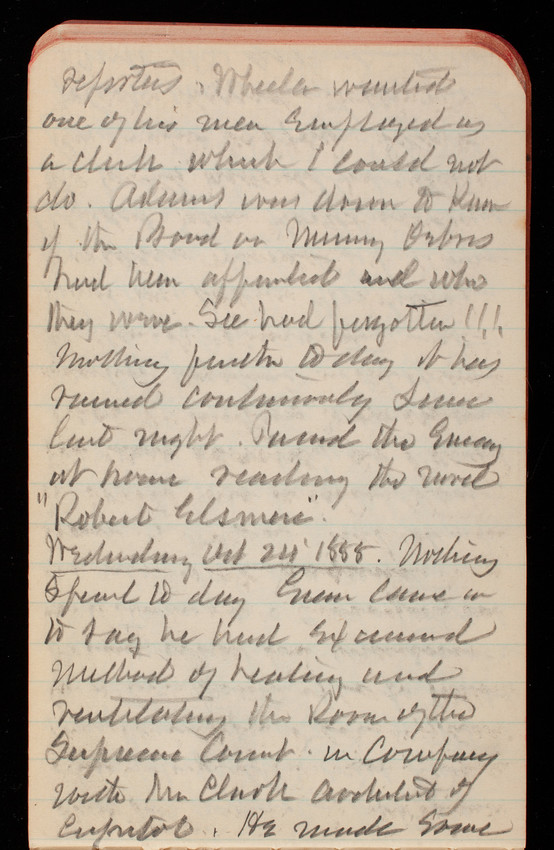 reports. Wheeler wanted
one of his men employed as
a clerk which I could not
do. Adams was down to know
if the Board on Mining Debris
had been appointed and who
they were. Sec had forgotten !!!.
Nothing further to day it has
rained continuously since
last night. the Evening
at home reading the novel
"Robert Elsmere".
Wednesday Oct 24 1888. Nothing
Special to day Green came in
to say he had Examined
Method of heating and
ventilating the Room of the
Supreme Court. in Company
with Mr Clark Architect of
Capitol. He made some